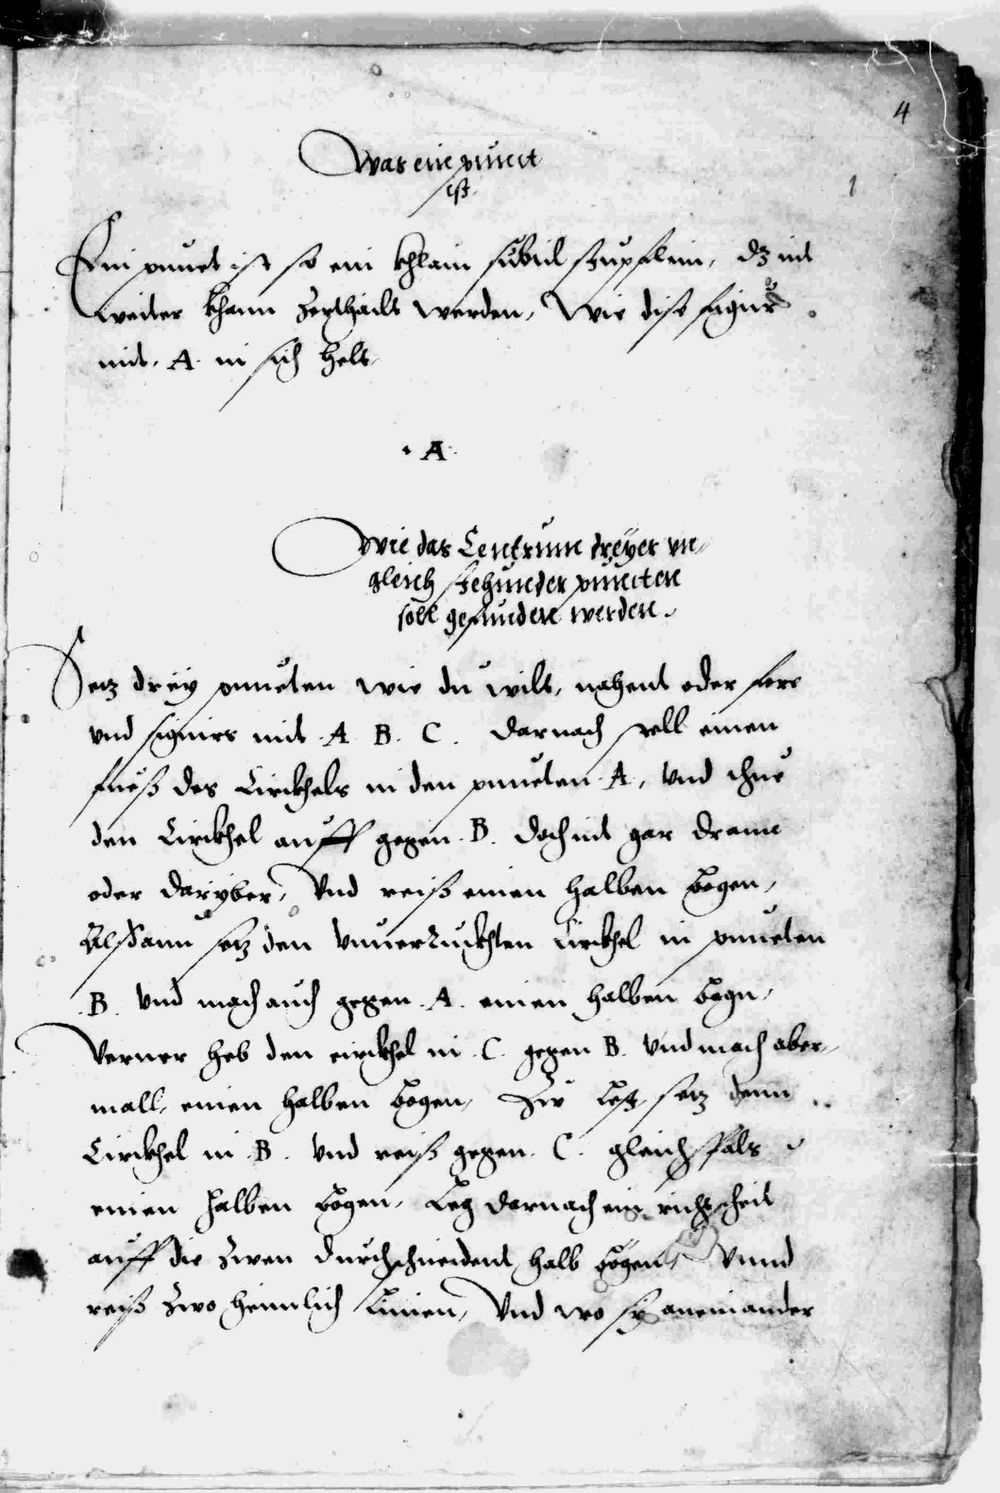 4
1
Was ein punct
ist.
Ein punct ist so ein khlain subtil tupflein, dz nit
weiter khann zerthailt werden, Wie dise figur
mit. A. in sich helt.
. A.
Wie das Centrum dreyer vn-
gleich stehunder puncten
soll gefunden werden.
Setz drey puncten wie du wilt, nahent oder ferr
vnd signirs mit .A. B. C. Darnach stell einen
fueß des Circkhels in den puncten .A, vnd thue
den Circkhel auff gegen .B. doch nit gar dran
oder daryber, Vnd reiß einen halben bogen,
Alßdann setz den vnuerruckhten Circkhel in puncten
.B. Vnd mach auch gegen .A. einen halben bogn,
Verner heb den circkhel in .C. gegen B. Vnd mach aber-
mall, einen halben bogen, Zu Letz setz denn
Circkhel in .B. Vnd reiß gegen .C. gleichffals
einen halben bogen, Leg darnach ein richtscheit
auff die zwen durchschneident halb bögen, Vnnd
reiß zwo heimlich Linien, Vnd wo sy aneinander